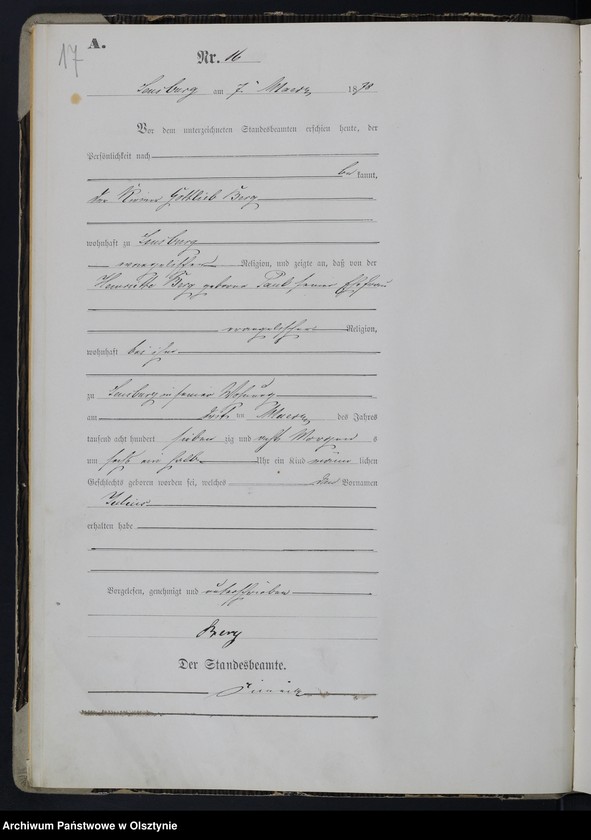 17
A.
Nr. 16
Sensburg am 7. Maerz 1878
Vor dem unterzeichneten Standesbeamten erschien heute, der
Persönlichkeit nach
be kannt,
der Gottlieb Berg
wohnhaft zu Sensburg
evangelischer Religion, und zeigte an, daß von der
Henriette Berg geborne Pauls seiner Ehefrau
evangelischer Religion,
wohnhaft bei ihm
zu Sensburg in seiner Wohnung
am ten Maerz des Jahres
tausend acht hundert sieben zig und acht Morgens
um ein halb Uhr ein Kind männ lichen
Geschlechts geboren worden sei, welches den Vornamen
Julius
erhalten habe
Vorgelesen, genehmigt und unterschrieben
Berg
Der Standesbeamte.
Archiwum Państwowe w Olsztynie